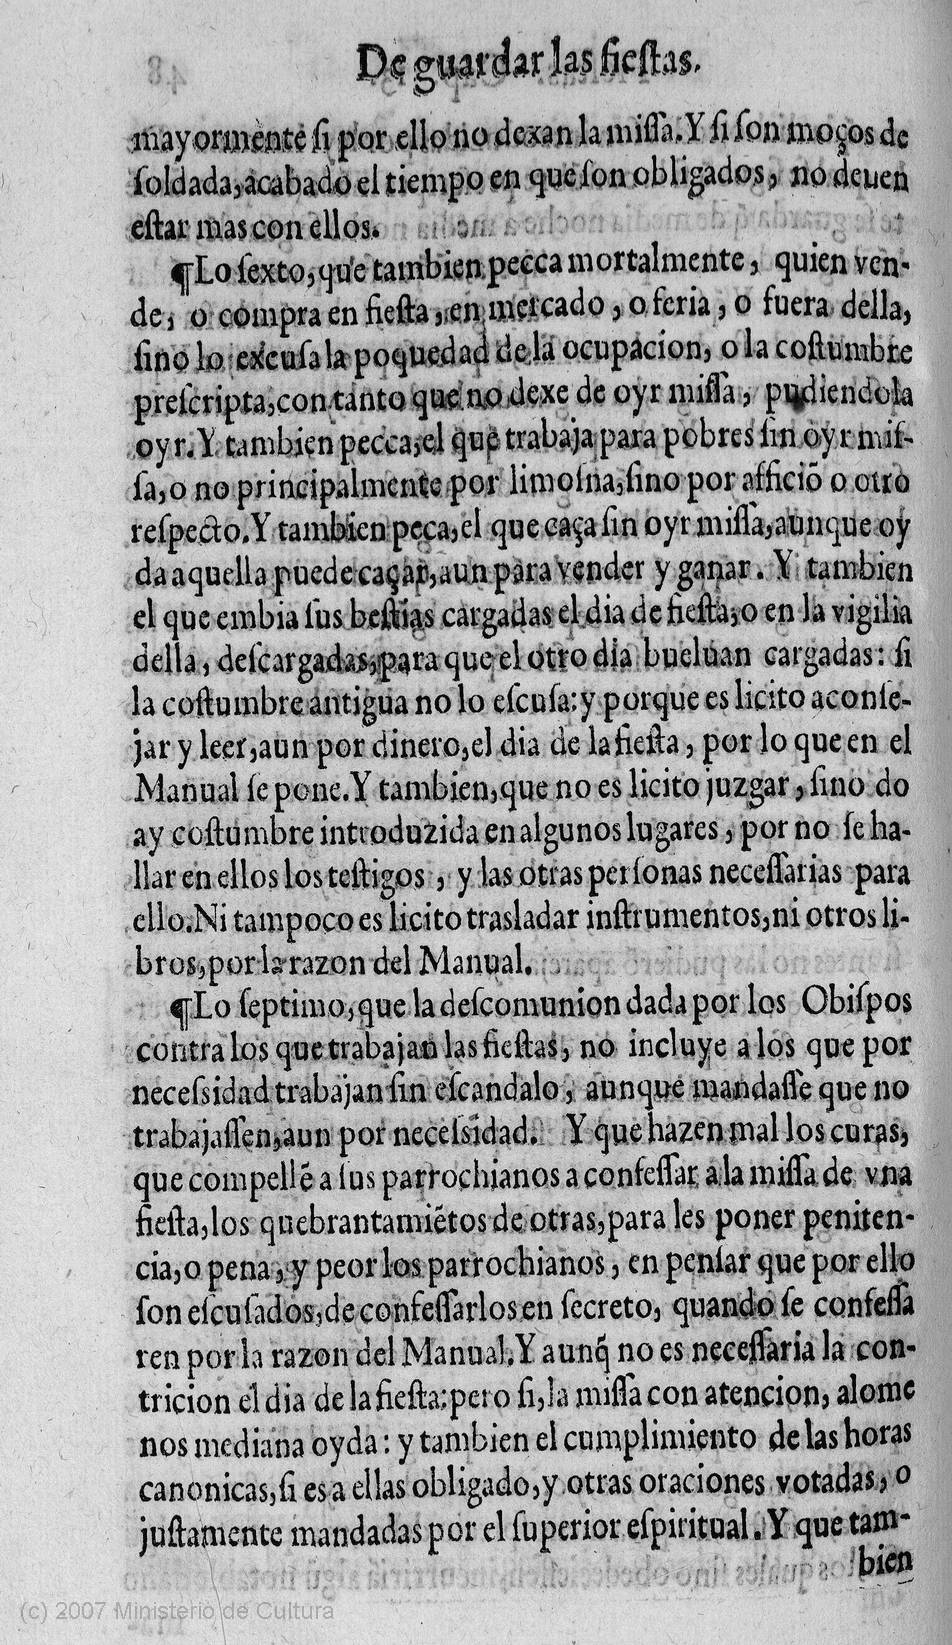 De guardar las fiestas.
mayormente si por ello no dexan la missa. Y si son moços de
soldada, acabado el tiempo en que son obligados, no deuen
estar mas con ellos.
¶Lo sexto, que tambien pecca mortalmente, quien ven-
de, o compra en fiesta, en mercado, o feria, o fuera della,
sino lo excusa la poquedad de la ocupacion, o la costumbre
prescripta, con tanto que no dexe de oyr missa, pudiendola
oyr. Y tambien pecca, el que trabaja para pobres sin oyr mis-
sa, o no principalmente por limosna, sino por afficiõ o otro
respecto. Y tambien peca, el que caça sin oyr missa, aunque oy
da aquella puede caçar, aun para vender y ganar. Y tambien
el que embia sus bestias cargadas el dia de fiesta, o en la vigilia
della, descargadas, para que el otro dia bueluan cargadas: si
la costumbre antigua no lo escusa: y porque es licito aconse-
jar y leer, aun por dinero, el dia de la fiesta, por lo que en el
Manual se pone. Y tambien, que no es licito juzgar, sino do
ay costumbre introduzida en algunos lugares, por no se ha-
llar en ellos los testigos, y las otras personas necessarias para
ello. Ni tampoco es licito trasladar instrumentos, ni otros li-
bros, por la razon del Manual.
¶Lo septimo, que la descomunion dada por los Obispos
contra los que trabajan las fiestas, no incluye a los que por
necessidad trabajan sin escandalo, aunque mandasse que no
trabajassen, aun por necessidad. Y que hazen mal los curas,
que compellẽ a sus parrochianos a confessar a la missa de vna
fiesta, los quebrantamiẽtos de otras, para les poner peniten-
cia, o pena, y peor los parrochianos, en pensar que por ello
son escusados, de confessarlos en secreto, quando se confessa
ren por la razon del Manual. Y aunq̃ no es necessaria la con-
tricion el dia de la fiesta: pero si, la missa con atencion, alome
nos mediana oyda: y tambien el cumplimiento de las horas
canonicas, si es a ellas obligado, y otras oraciones votadas, o
justamente mandadas por el superior espiritual. Y que tam-
bien
(c) 2007 Ministerio de Cultura